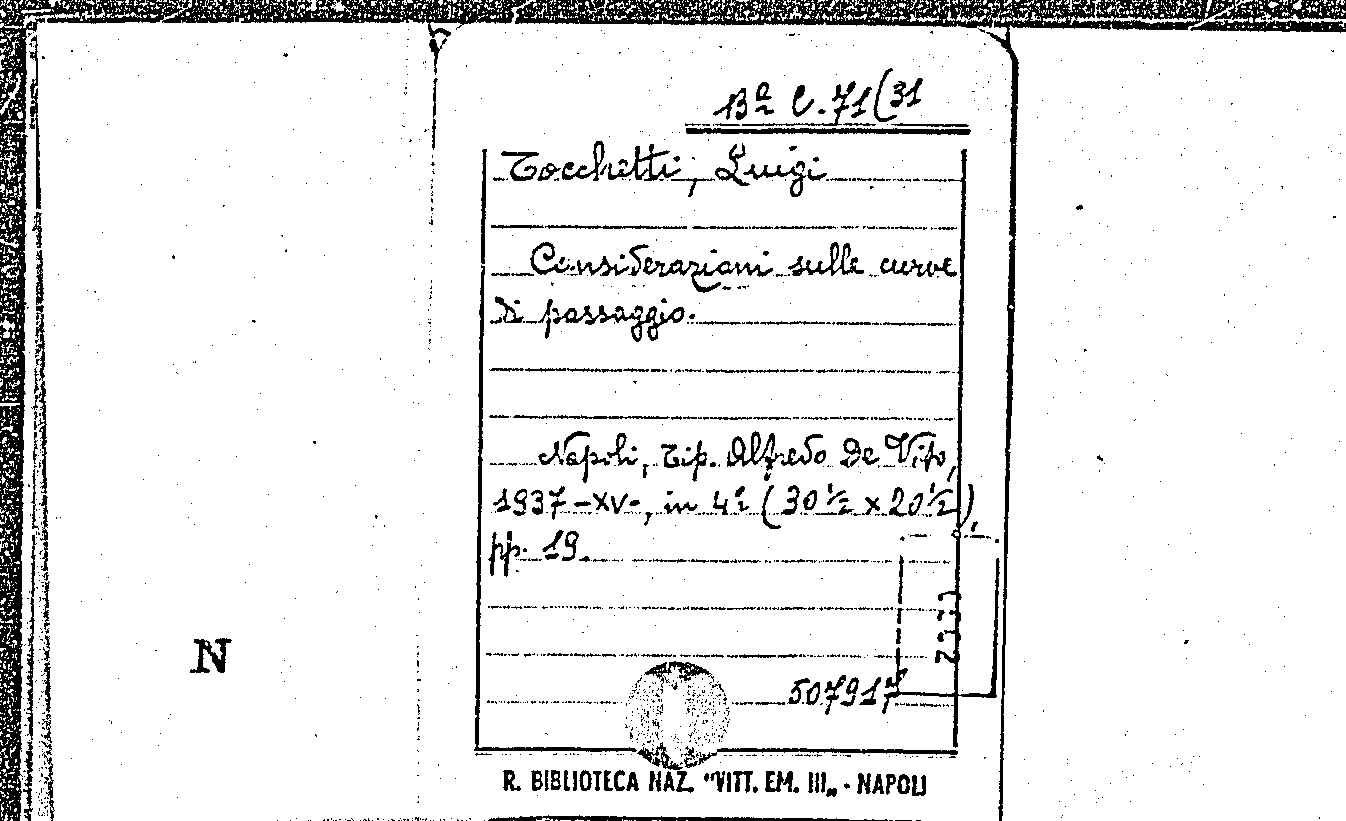 Bª C.71(31
Tocchetti, Luigi
Considerazioni sulle curve
di passaggio.
Napoli, Tip. Alfredo De Vito,
1937-XV-, in 4º (30½ x 20½),
pp. 19.
N
507917
R. BIBLIOTECA NAZ. "VITT. EM. III„ - NAPOLI